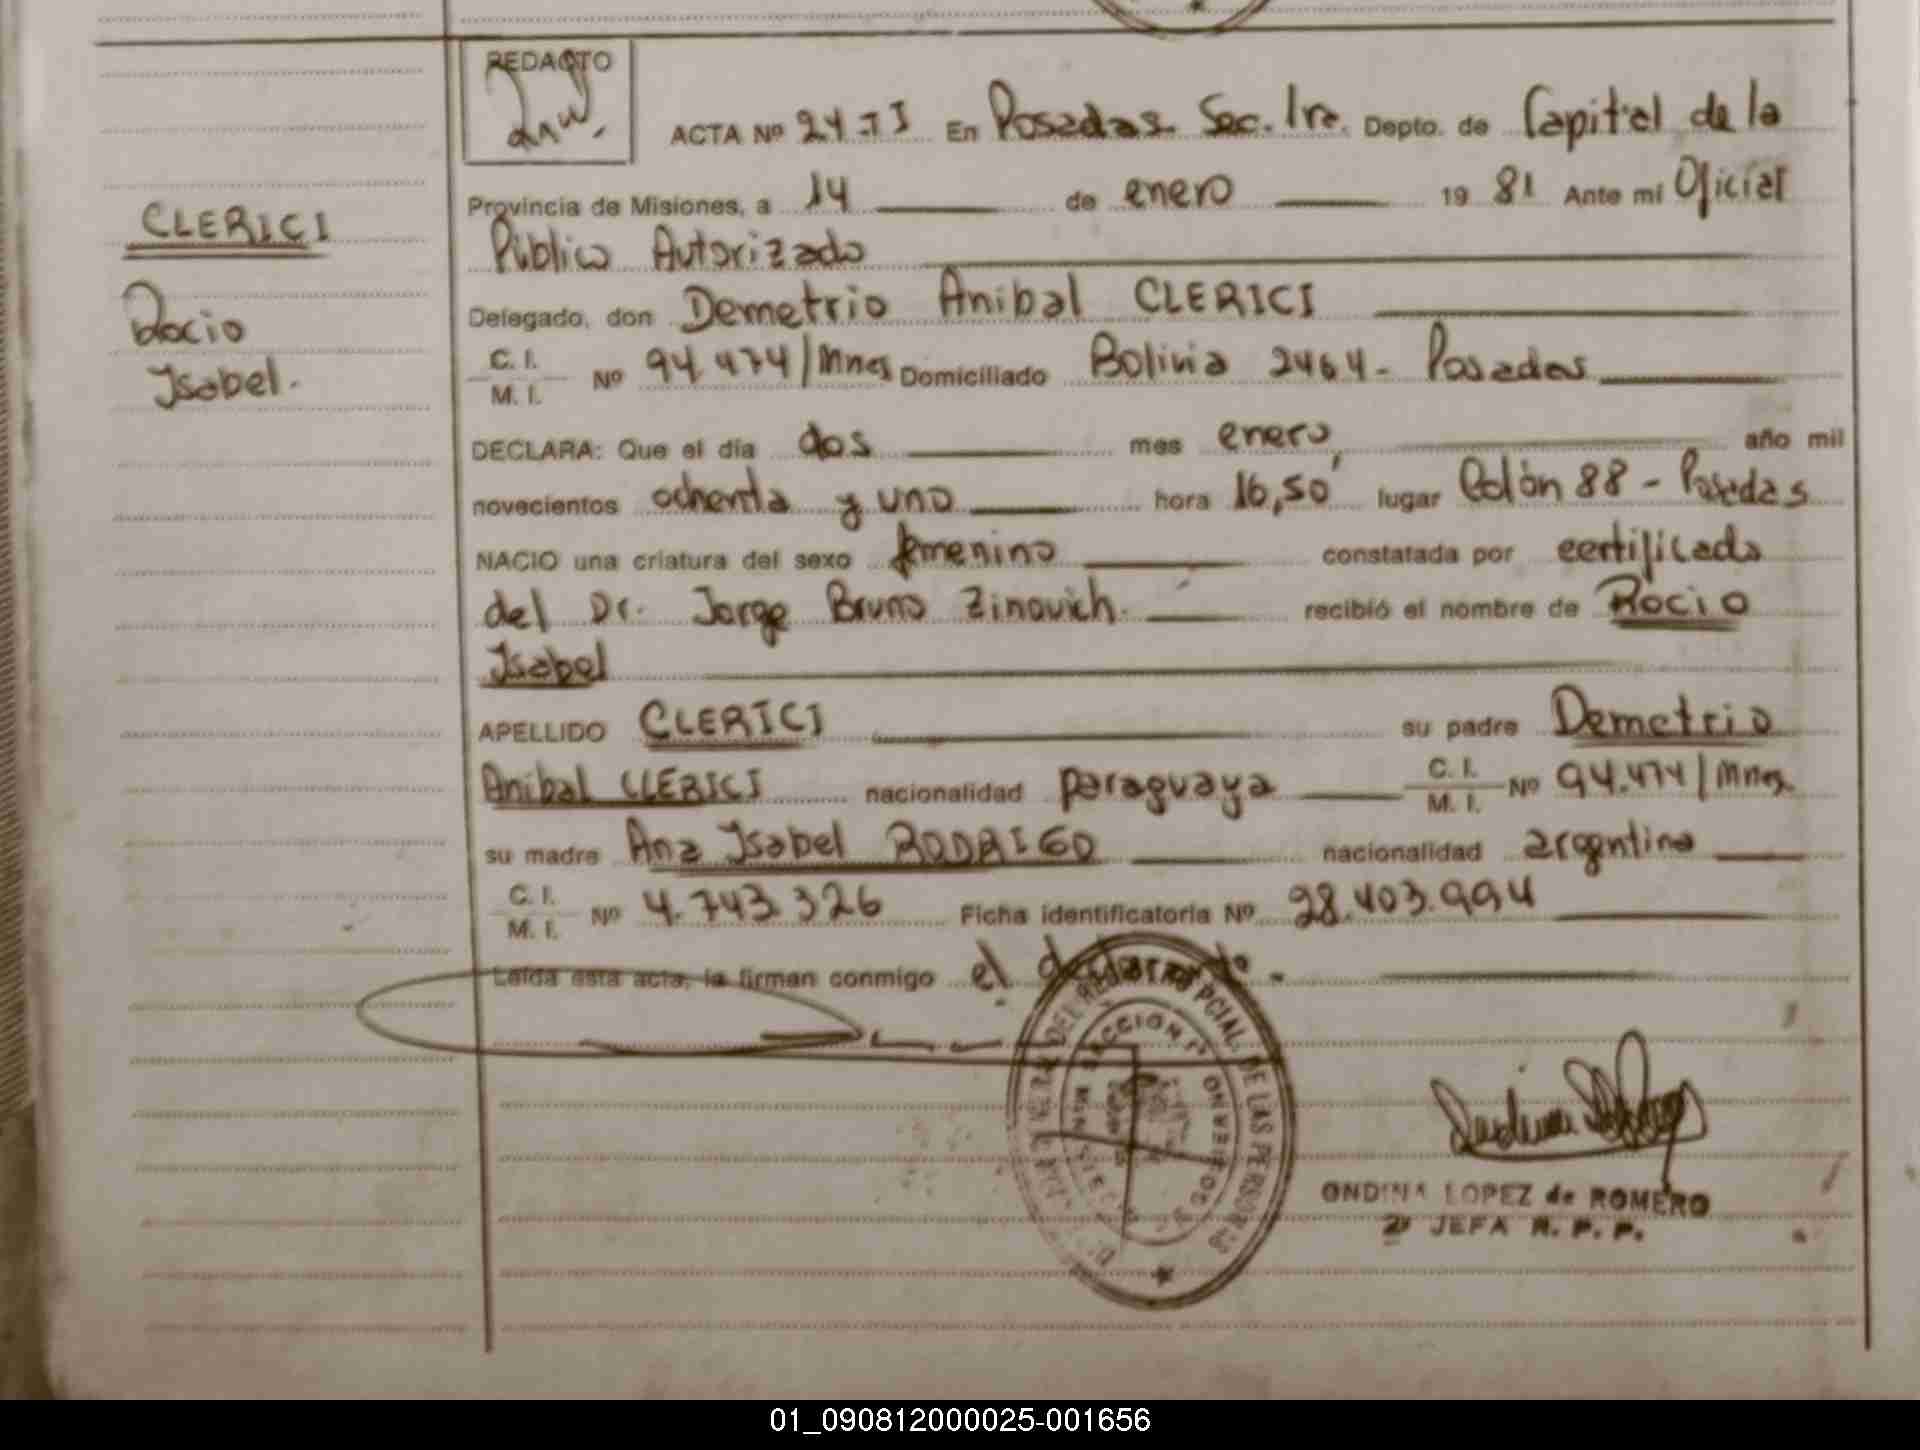 REDACTO
ACTA Nº 24-TI En Posadas Sec. 1ra. Depto. de Capital de la
Provincia de Misiones, a 14 de enero 19 81 Ante mi Oficial
Público Autorizado
CLERICI
Rocio
Isabel.
Delegado, don Demetrio Anibal CLERICI
C. I.
M. I. Nº 94.474/Mnes Domiciliado Bolivia 2464- Posadas
DECLARA: Que el día dos mes enero, año mil
novecientos ochenta y uno hora 16,50' lugar Colón 88 - Posadas
NACIO una criatura del sexo femenino constatada por certificado
del Dr. Jorge Bruno Zinovich. recibió el nombre de Rocio
Isabel
APELLIDO CLERICI su padre Demetrio
Anibal CLERICI nacionalidad paraguaya C. I.
M. I. Nº 94.474/Mnes.
su madre Ana Isabel RODRIGO nacionalidad argentina
C. I.
M. I. Nº 4.743.326 Ficha identificatoria Nº 28.403.994
Leída esta acta, la firman conmigo el declarante.
DEL REGISTRO PCIAL. DE LAS PERSONAS
SECCION 1ª
ONDINA LOPEZ de ROMERO
2ª JEFA R. P. P.
01_090812000025-001656